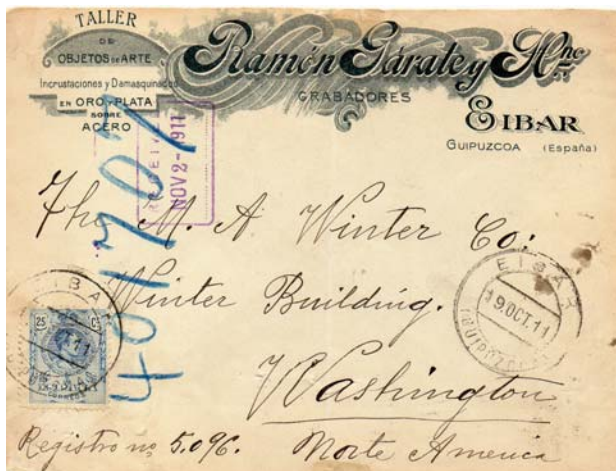 TALLER
DE
OBJETOS DE ARTE
Incrustaciones y Damasquinados
EN ORO Y PLATA
SOBRE
ACERO
Ramón Gárate y Hno
GRABADORES
EIBAR
GUIPUZCOA (España)
NOV 2-1911
401707
The M. A Winter Co:
Winter Building.
Washington
Norte America
Registro no 5.096.
EIBAR
19 OCT.11
(GUIPUZCOA)
EIBAR
11
25 Cs
CORREOS